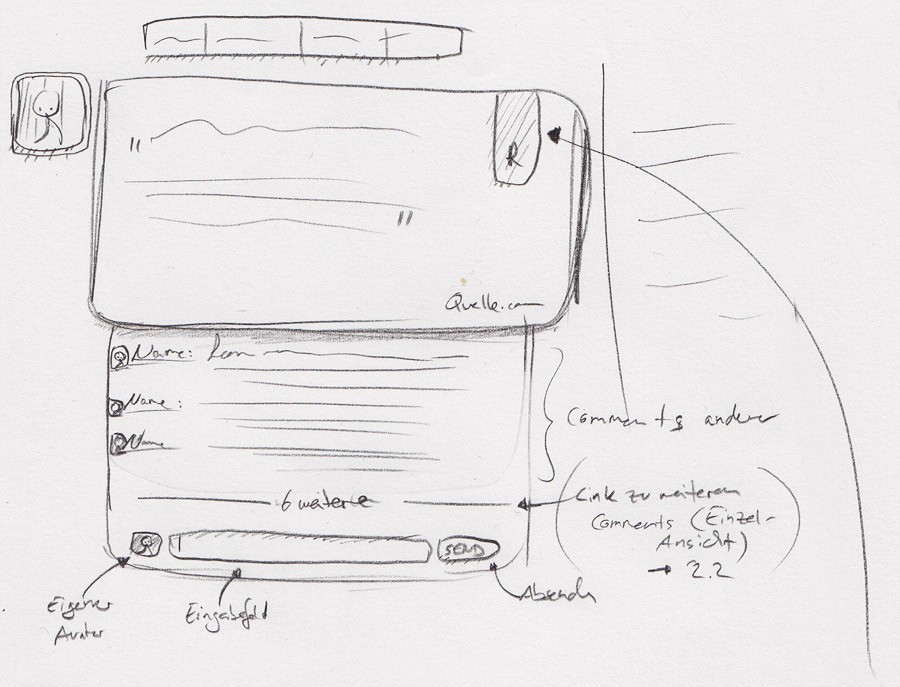 "
R
"
Quelle.com
Name:
Name:
Name
Comments anderer
6 weitere
Link zu weiteren
Comments (Einzel-
Ansicht)
→ 2.2
SEND
Absenden
Eigener
Avatar
Eingabefeld